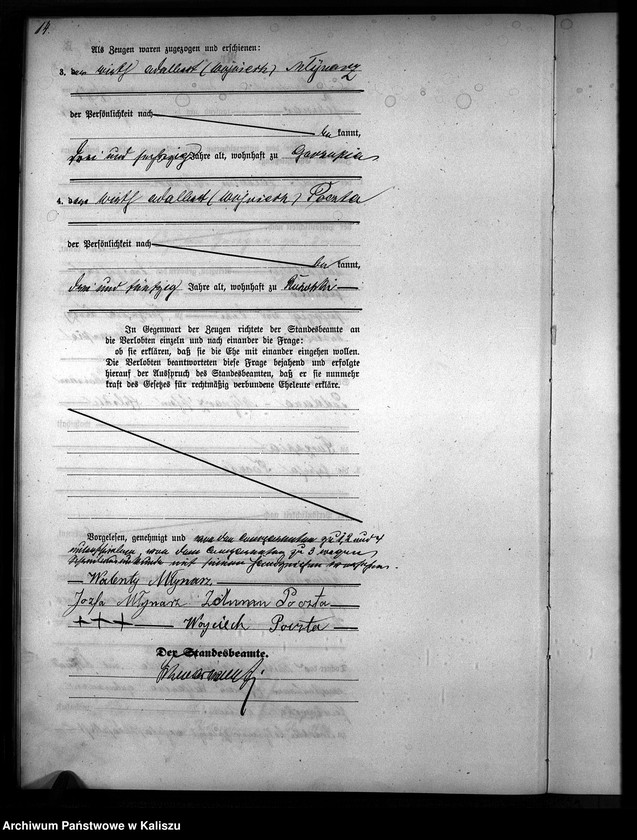 14.
Als Zeugen waren zugezogen und erschienen:
3. der Wirth Adalbert (Wojciech) Młynarz
der Persönlichkeit nach
be kannt,
drei und sechzig Jahre alt, wohnhaft zu
4. der Wirth Adalbert (Wojciech) Poczta
der Persönlichkeit nach
be kannt,
drei und fünfzig Jahre alt, wohnhaft zu
In Gegenwart der Zeugen richtete der Standesbeamte an
die Verlobten einzeln und nach einander die Frage:
ob sie erklären, daß sie die Ehe mit einander eingehen wollen.
Die Verlobten beantworteten diese Frage bejahend und erfolgte
hierauf der Ausspruch des Standesbeamten, daß er sie nunmehr
kraft des Gesetzes für rechtmäßig verbundene Eheleute erkläre.
Vorgelesen, genehmigt und von den zu 1, 2 und 4
unterschrieben, von dem zu 3 wegen
mit seinem Handzeichen versehen.
Walenty Młynarz
Jozefa Młynarz Poczta
+++ Wojciech Poczta
Der Standesbeamte.
Archiwum Państwowe w Kaliszu